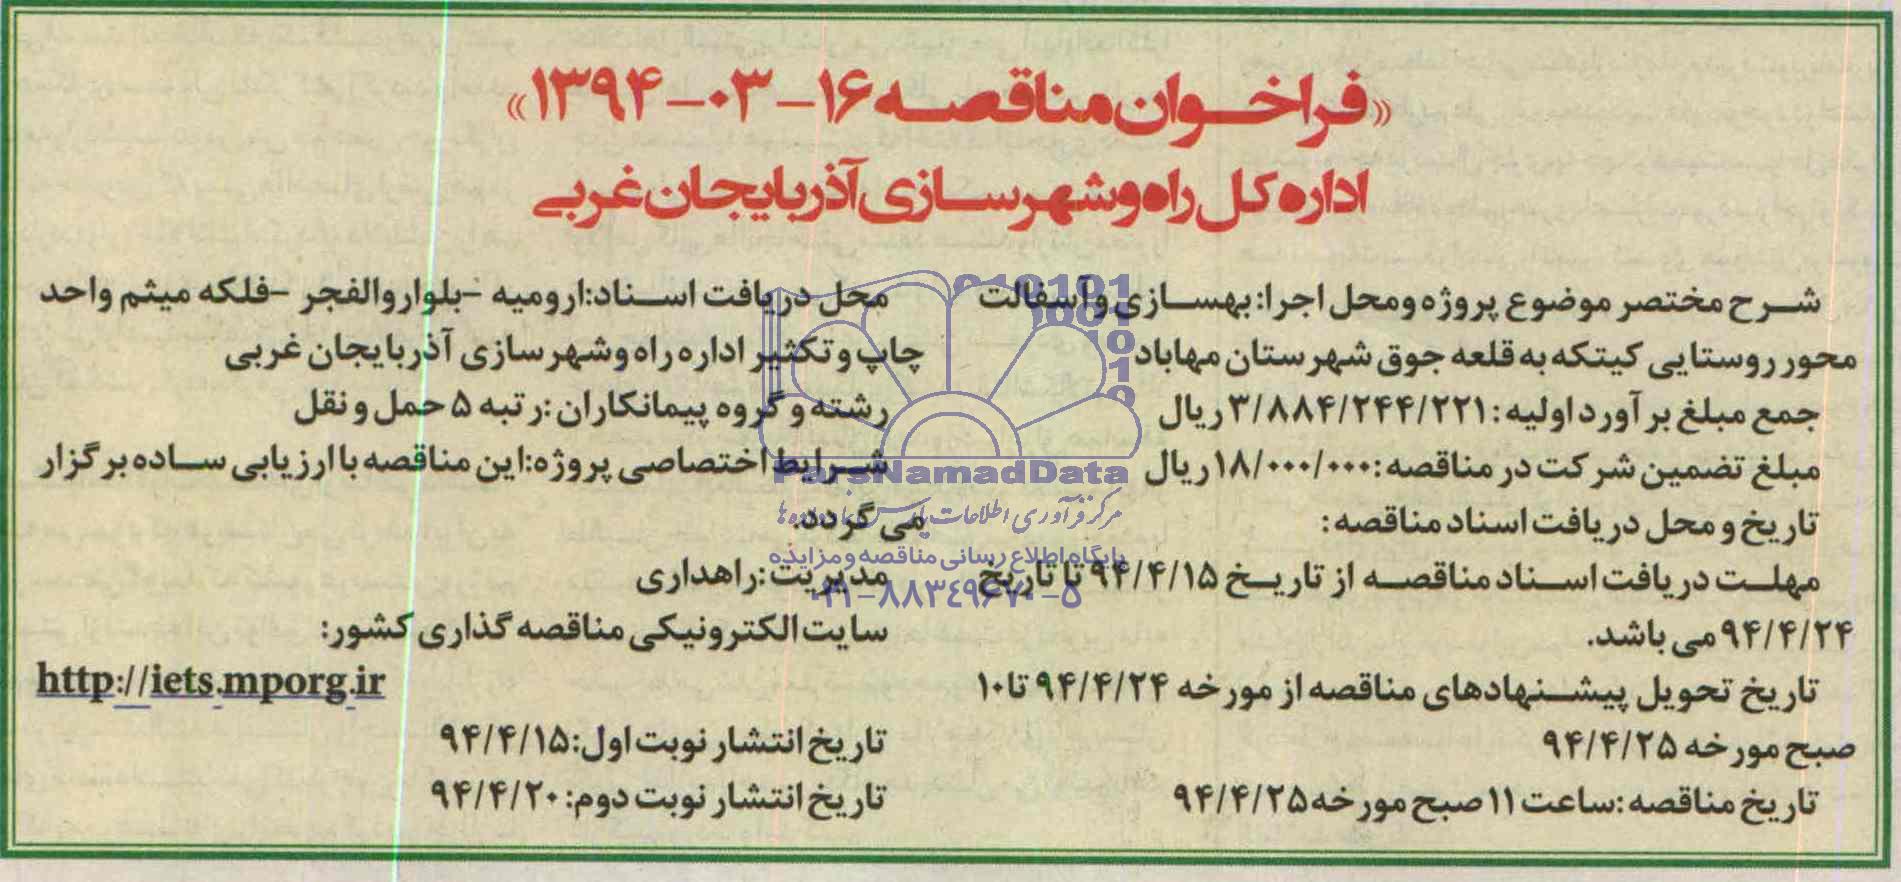 «فراخوان مناقصه ۱۶-۰۳-۱۳۹۴»
اداره کل راه وشهرسازی آذربایجان غربی
شرح مختصر موضوع پروژه ومحل اجرا: بهسازی وآسفالت
محور روستایی کیتکه به قلعه جوق شهرستان مهاباد
جمع مبلغ برآورد اولیه: ۳/۸۸۴/۲۴۴/۲۲۱ ریال
مبلغ تضمین شرکت در مناقصه: ۱۸/۰۰۰/۰۰۰ ریال
تاریخ و محل دریافت اسناد مناقصه:
مهلت دریافت اسناد مناقصه از تاریخ ۹۴/۴/۱۵ تا تاریخ
۹۴/۴/۲۴ می باشد.
تاریخ تحویل پیشنهادهای مناقصه از مورخه ۹۴/۴/۲۴ تا ۱۰
صبح مورخه ۹۴/۴/۲۵
تاریخ مناقصه: ساعت ۱۱ صبح مورخه ۹۴/۴/۲۵
محل دریافت اسناد: ارومیه -بلوار والفجر -فلکه میثم واحد
چاپ و تکثیر اداره راه وشهرسازی آذربایجان غربی
رشته و گروه پیمانکاران: رتبه ۵ حمل و نقل
شرایط اختصاصی پروژه: این مناقصه با ارزیابی ساده برگزار
می گردد.
مدیریت: راهداری
سایت الکترونیکی مناقصه گذاری کشور:
http://iets.mporg.ir
تاریخ انتشار نوبت اول: ۹۴/۴/۱۵
تاریخ انتشار نوبت دوم: ۹۴/۴/۲۰
ParsNamadData
مرکز فرآوری اطلاعات پارس نماد داده ها
پایگاه اطلاع رسانی مناقصه و مزایده
۰۲۱-۸۸۳۴۹۶۷۰-۵